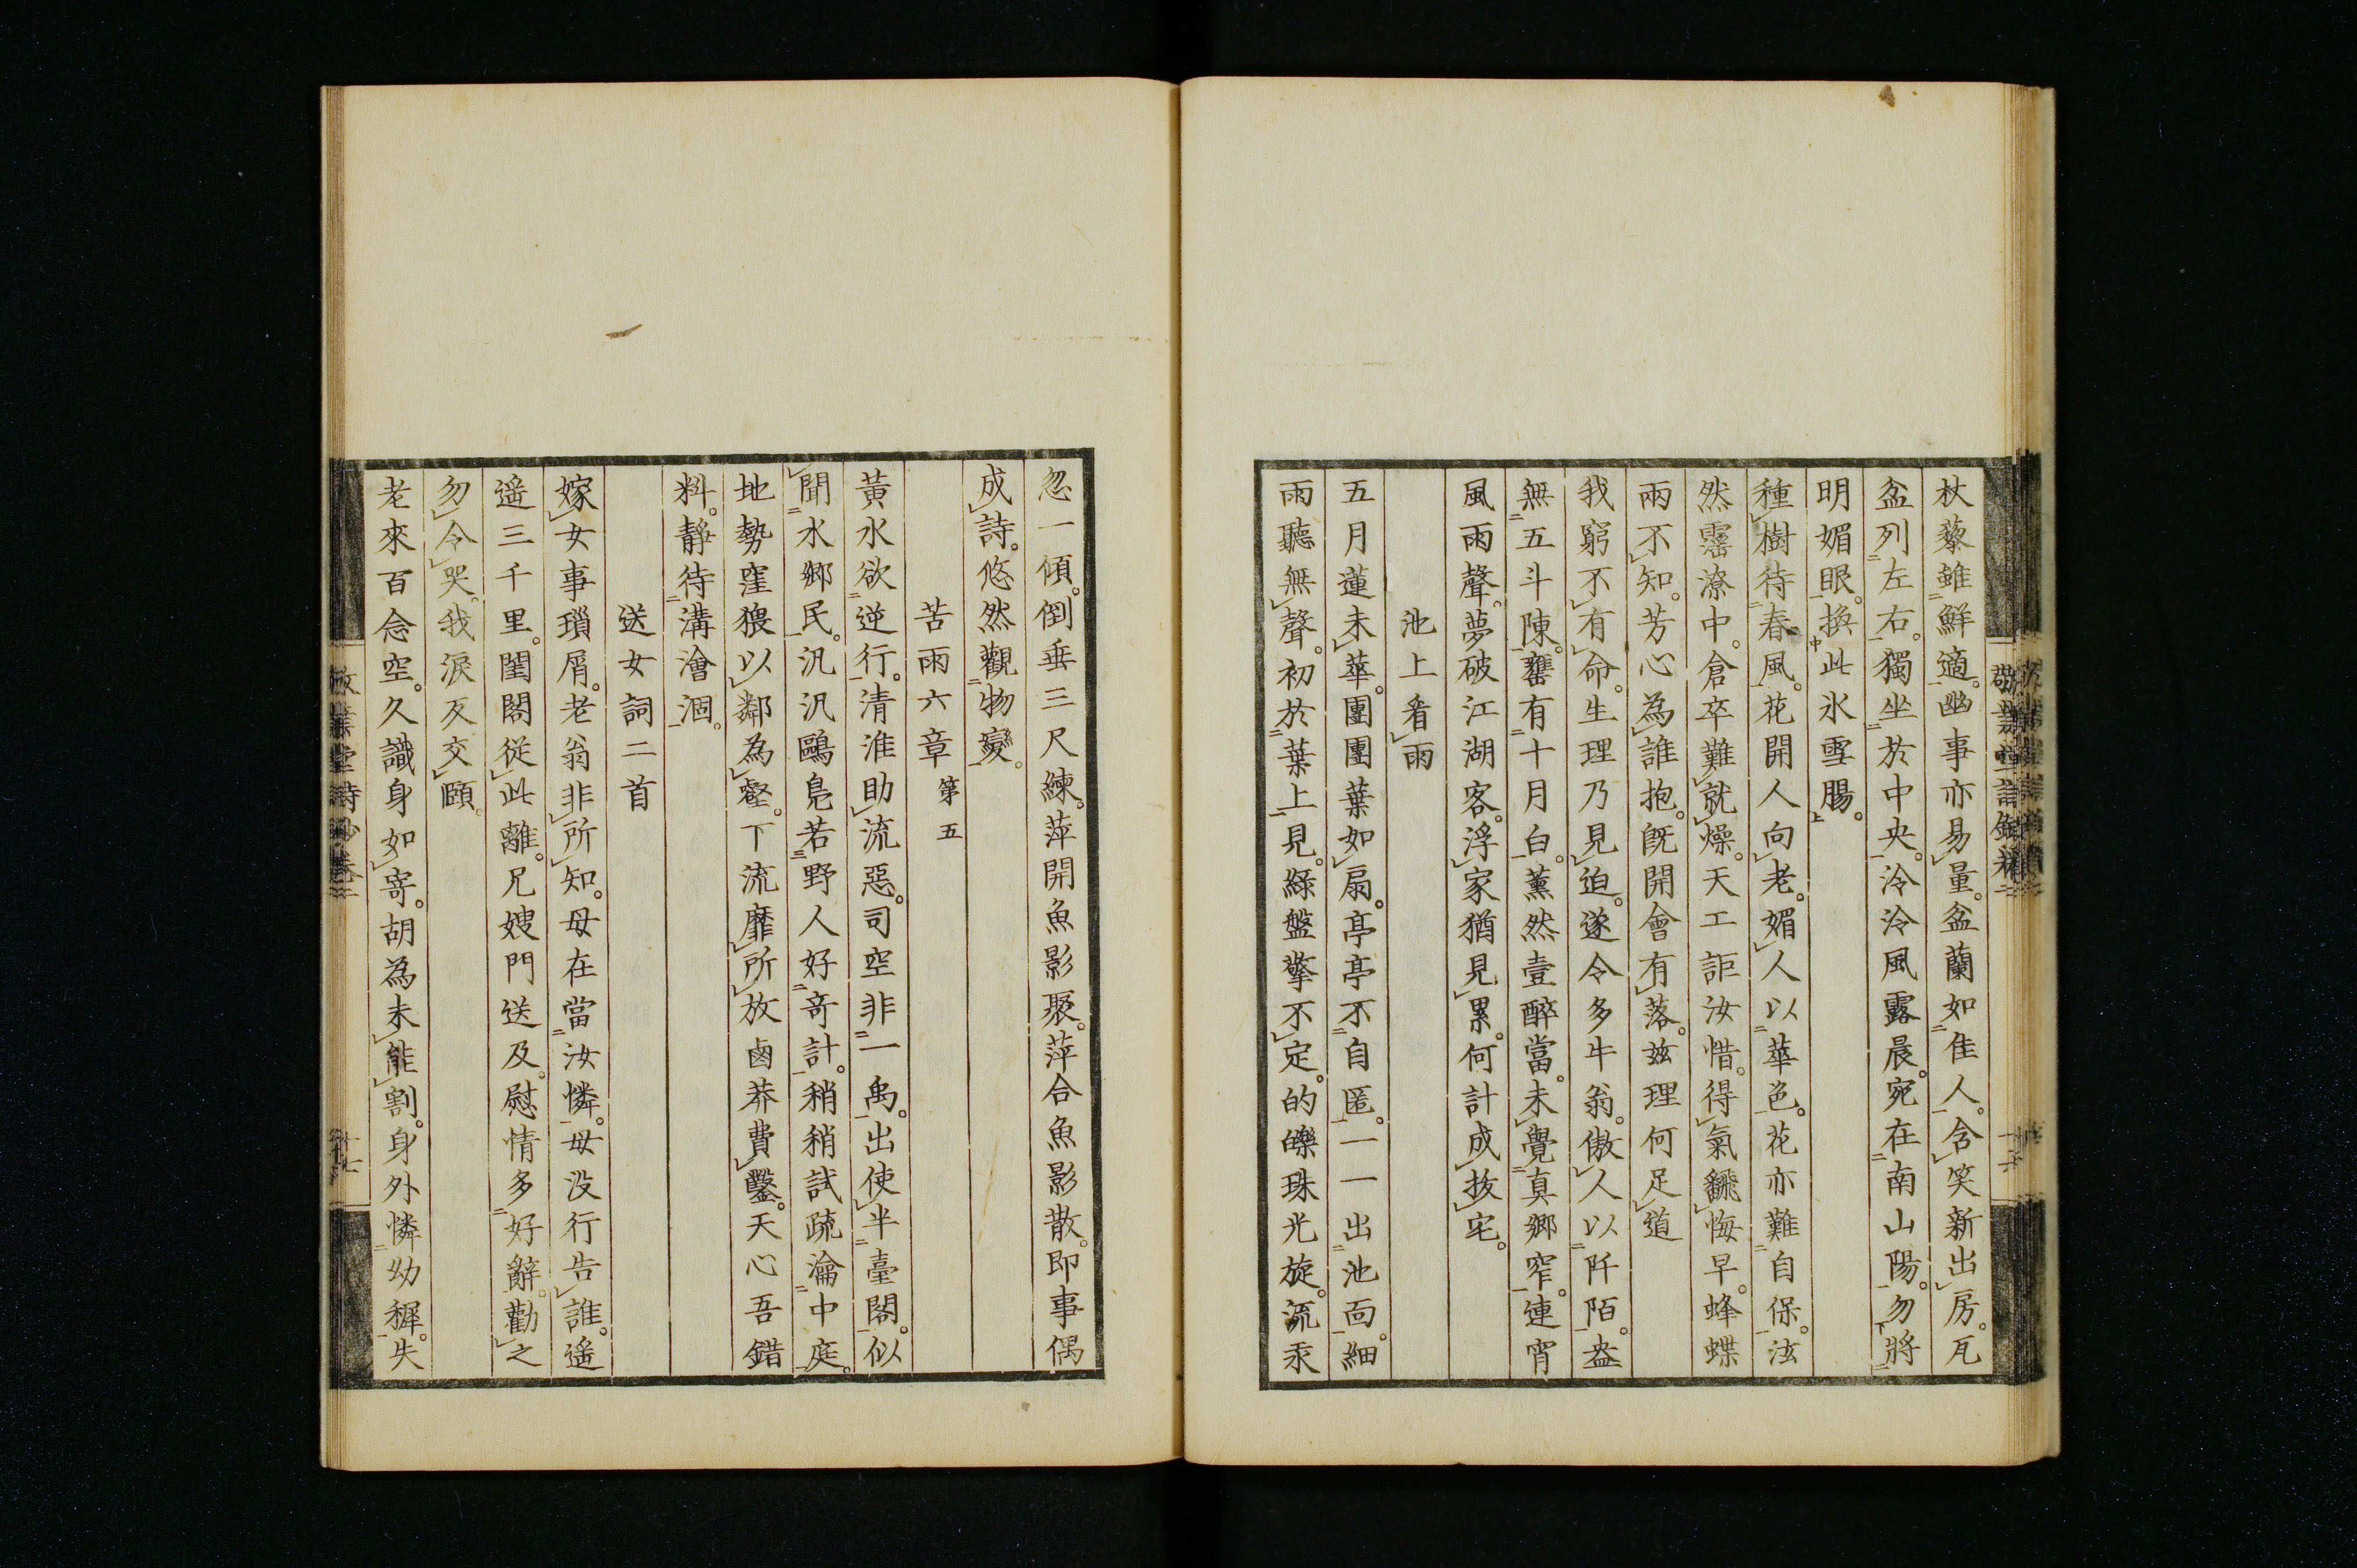 杖藜雖鮮適。幽事亦易量。盆蘭如佳人。含笑新出房。瓦
盆列左右。獨坐於中央。泠泠風露晨。宛在南山陽。勿將
明媚眼。換此氷雪腸。
種樹待春風。花開人向老。媚人以華色。花亦難自保。泫
然霪潦中。倉卒難就燥。天工詎汝惜。得氣飜悔早。蜂蝶
兩不知。芳心為誰抱。既開會有落。玆理何足道
我窮不有命。生理乃見迫。遂令多牛翁。傲人以阡陌。盎
無五斗陳。罋有十月白。薰然壹醉當。未覺真鄉窄。連宵
風雨聲。夢破江湖客。浮家猶見累。何計成拔宅。
池上看雨
五月蓮未華。團團葉如扇。亭亭不自匿。一一出池面。細
雨聽無聲。初於葉上見。綠盤擎不定。的皪珠光旋。流汞
忽一傾。倒垂三尺練。萍開魚影聚。萍合魚影散。即事偶
成詩。悠然觀物變。
苦雨六章 第五
黃水欲逆行。清淮助流惡。司空非一禹。出使半臺閣。似
聞水鄉民。汎汎鷗鳧若。野人好奇計。稍稍試疏瀹。中庭
地勢窪。猥以鄰為壑。下流靡所放。鹵莽費鑿。天心吾錯
料。靜待溝澮涸。
送女詞二首
嫁女事瑣屑。老翁非所知。母在當汝憐。母沒行告誰。遥
遥三千里。閨閤從此離。兄嫂門送及。慰情多好辭。勸之
勿令哭。我淚反交頤。
老來百念空。久識身如寄。胡為未能割。身外憐幼穉。失